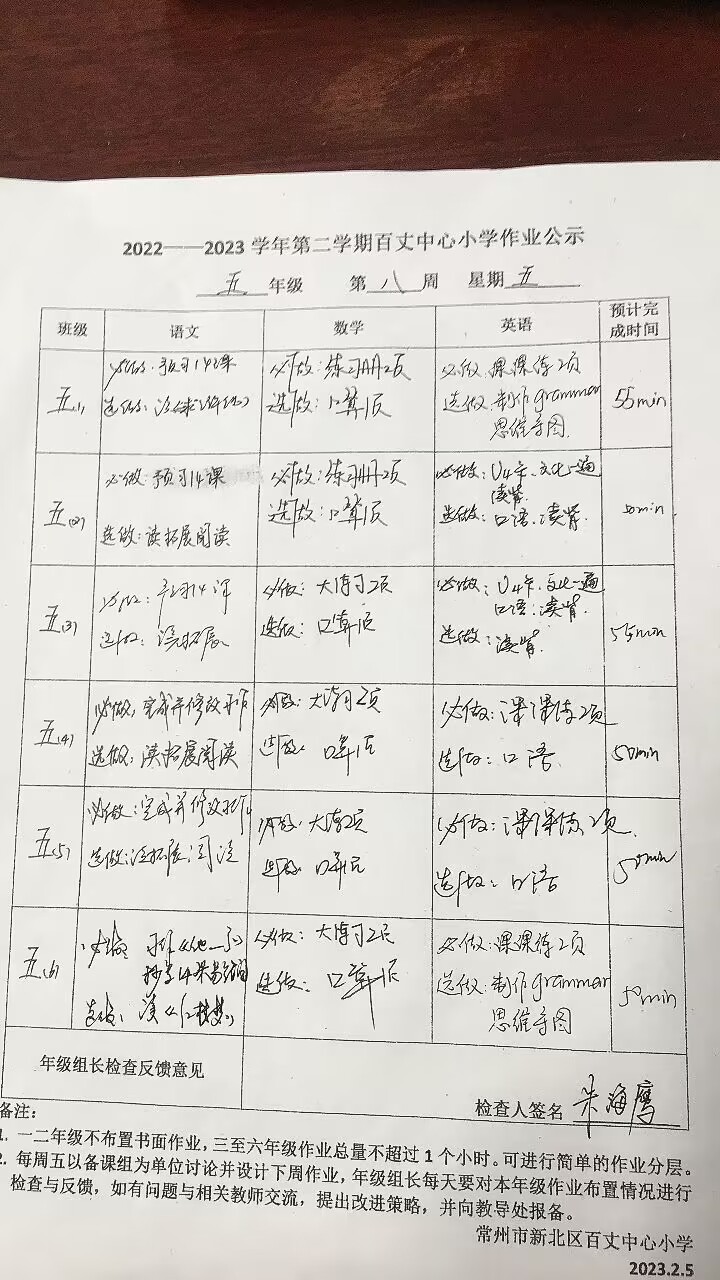 2022——2023 学年第二学期百丈中心小学作业公示
五 年级 第 八 周 星期 五
班级 语文 数学 英语 预计完成时间
五(1)
必做:预习14课
选做:
必做:练习册2页
选做:口算1页
必做:课课练2页
选做:制作grammar
思维导图
55min
五(2)
必做:预习14课
选做:读拓展阅读
必做:练习册2页
选做:口算1页
必做:U4卡、文化一遍
读背
选做:口语、读背
50min
五(3)
必做:预习14课
选做:读拓展
必做:大练习2页
选做:口算1页
必做:U4卡、文化一遍
口语、读背
选做:读背
55min
五(4)
必做:完成并修改习作
选做:读拓展阅读
必做:大练习2页
选做:口算1页
必做:课课练2页
选做:口语
50min
五(5)
必做:完成并修改习作
选做:读拓展阅读
必做:大练2页
选做:口算1页
必做:课课练2页
选做:口语
50min
五(6)
必做:
抄写14课
选做:读《红楼梦》
必做:大练习2页
选做:口算1页
必做:课课练2页
选做:制作grammar
思维导图
50min
年级组长检查反馈意见
检查人签名 朱海鹰
备注:
1. 一二年级不布置书面作业,三至六年级作业总量不超过 1 个小时。可进行简单的作业分层。
2. 每周五以备课组为单位讨论并设计下周作业,年级组长每天要对本年级作业布置情况进行
检查与反馈,如有问题与相关教师交流,提出改进策略,并向教导处报备。
常州市新北区百丈中心小学
2023.2.5